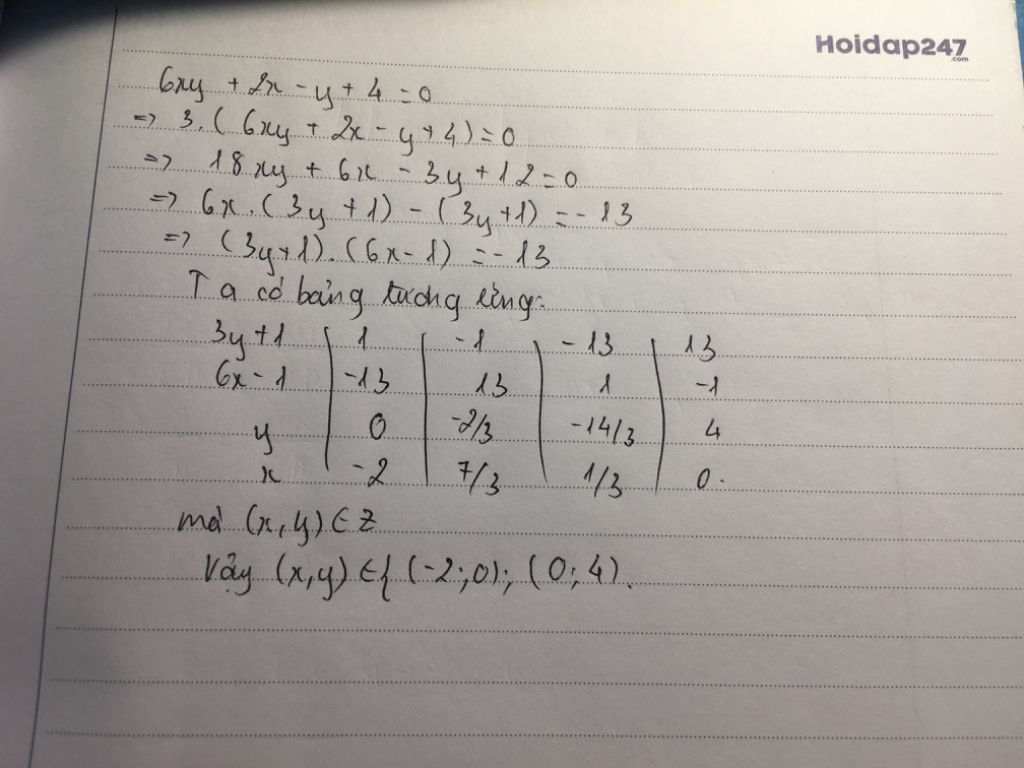 Hoidap247
.com
6xy + 2x - y + 4 = 0
=> 3.( 6xy + 2x - y + 4) = 0
=> 18xy + 6x - 3y + 12 = 0
=> 6x.( 3y + 1) - ( 3y + 1) = - 13
=> (3y + 1).(6x - 1) = - 13
Ta có bảng tương ứng:
3y + 1 | 1 | -1 | - 13 | 13
6x - 1 | -13 | 13 | 1 | -1
y | 0 | -2/3 | -14/3 | 4
x | -2 | 7/3 | 1/3 | 0.
mà (x,y) ∈ Z
Vậy (x,y) ∈ { (-2;0); (0;4).